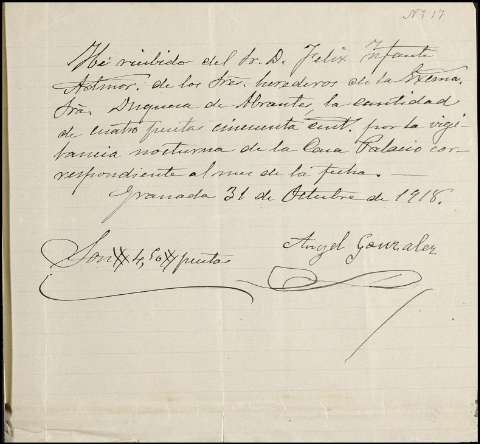 Nº 17
He recibido del Sr. D. Felix Infante
Admor. de los Sres. herederos de la Excma.
Sra. Duquesa de Abrantes, la cantidad
de cuatro pesetas cincuenta cent. por la vigi-
lancia nocturna de la Casa Palacio cor-
respondiente al mes de la fecha.—
Granada 31 de Octubre de 1918.
Angel Gonzalez
Son # 4,50 # pesetas